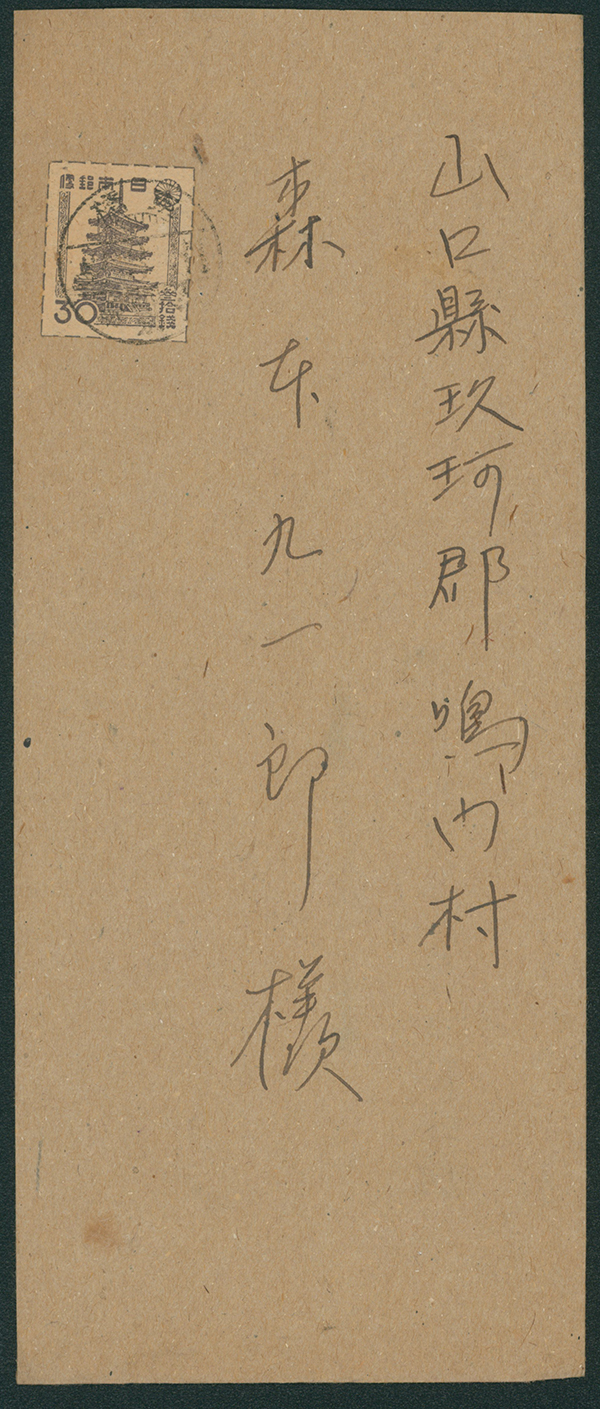 山口縣玖珂郡鳴門村
森本九一郎様
日本郵便
30
参拾銭